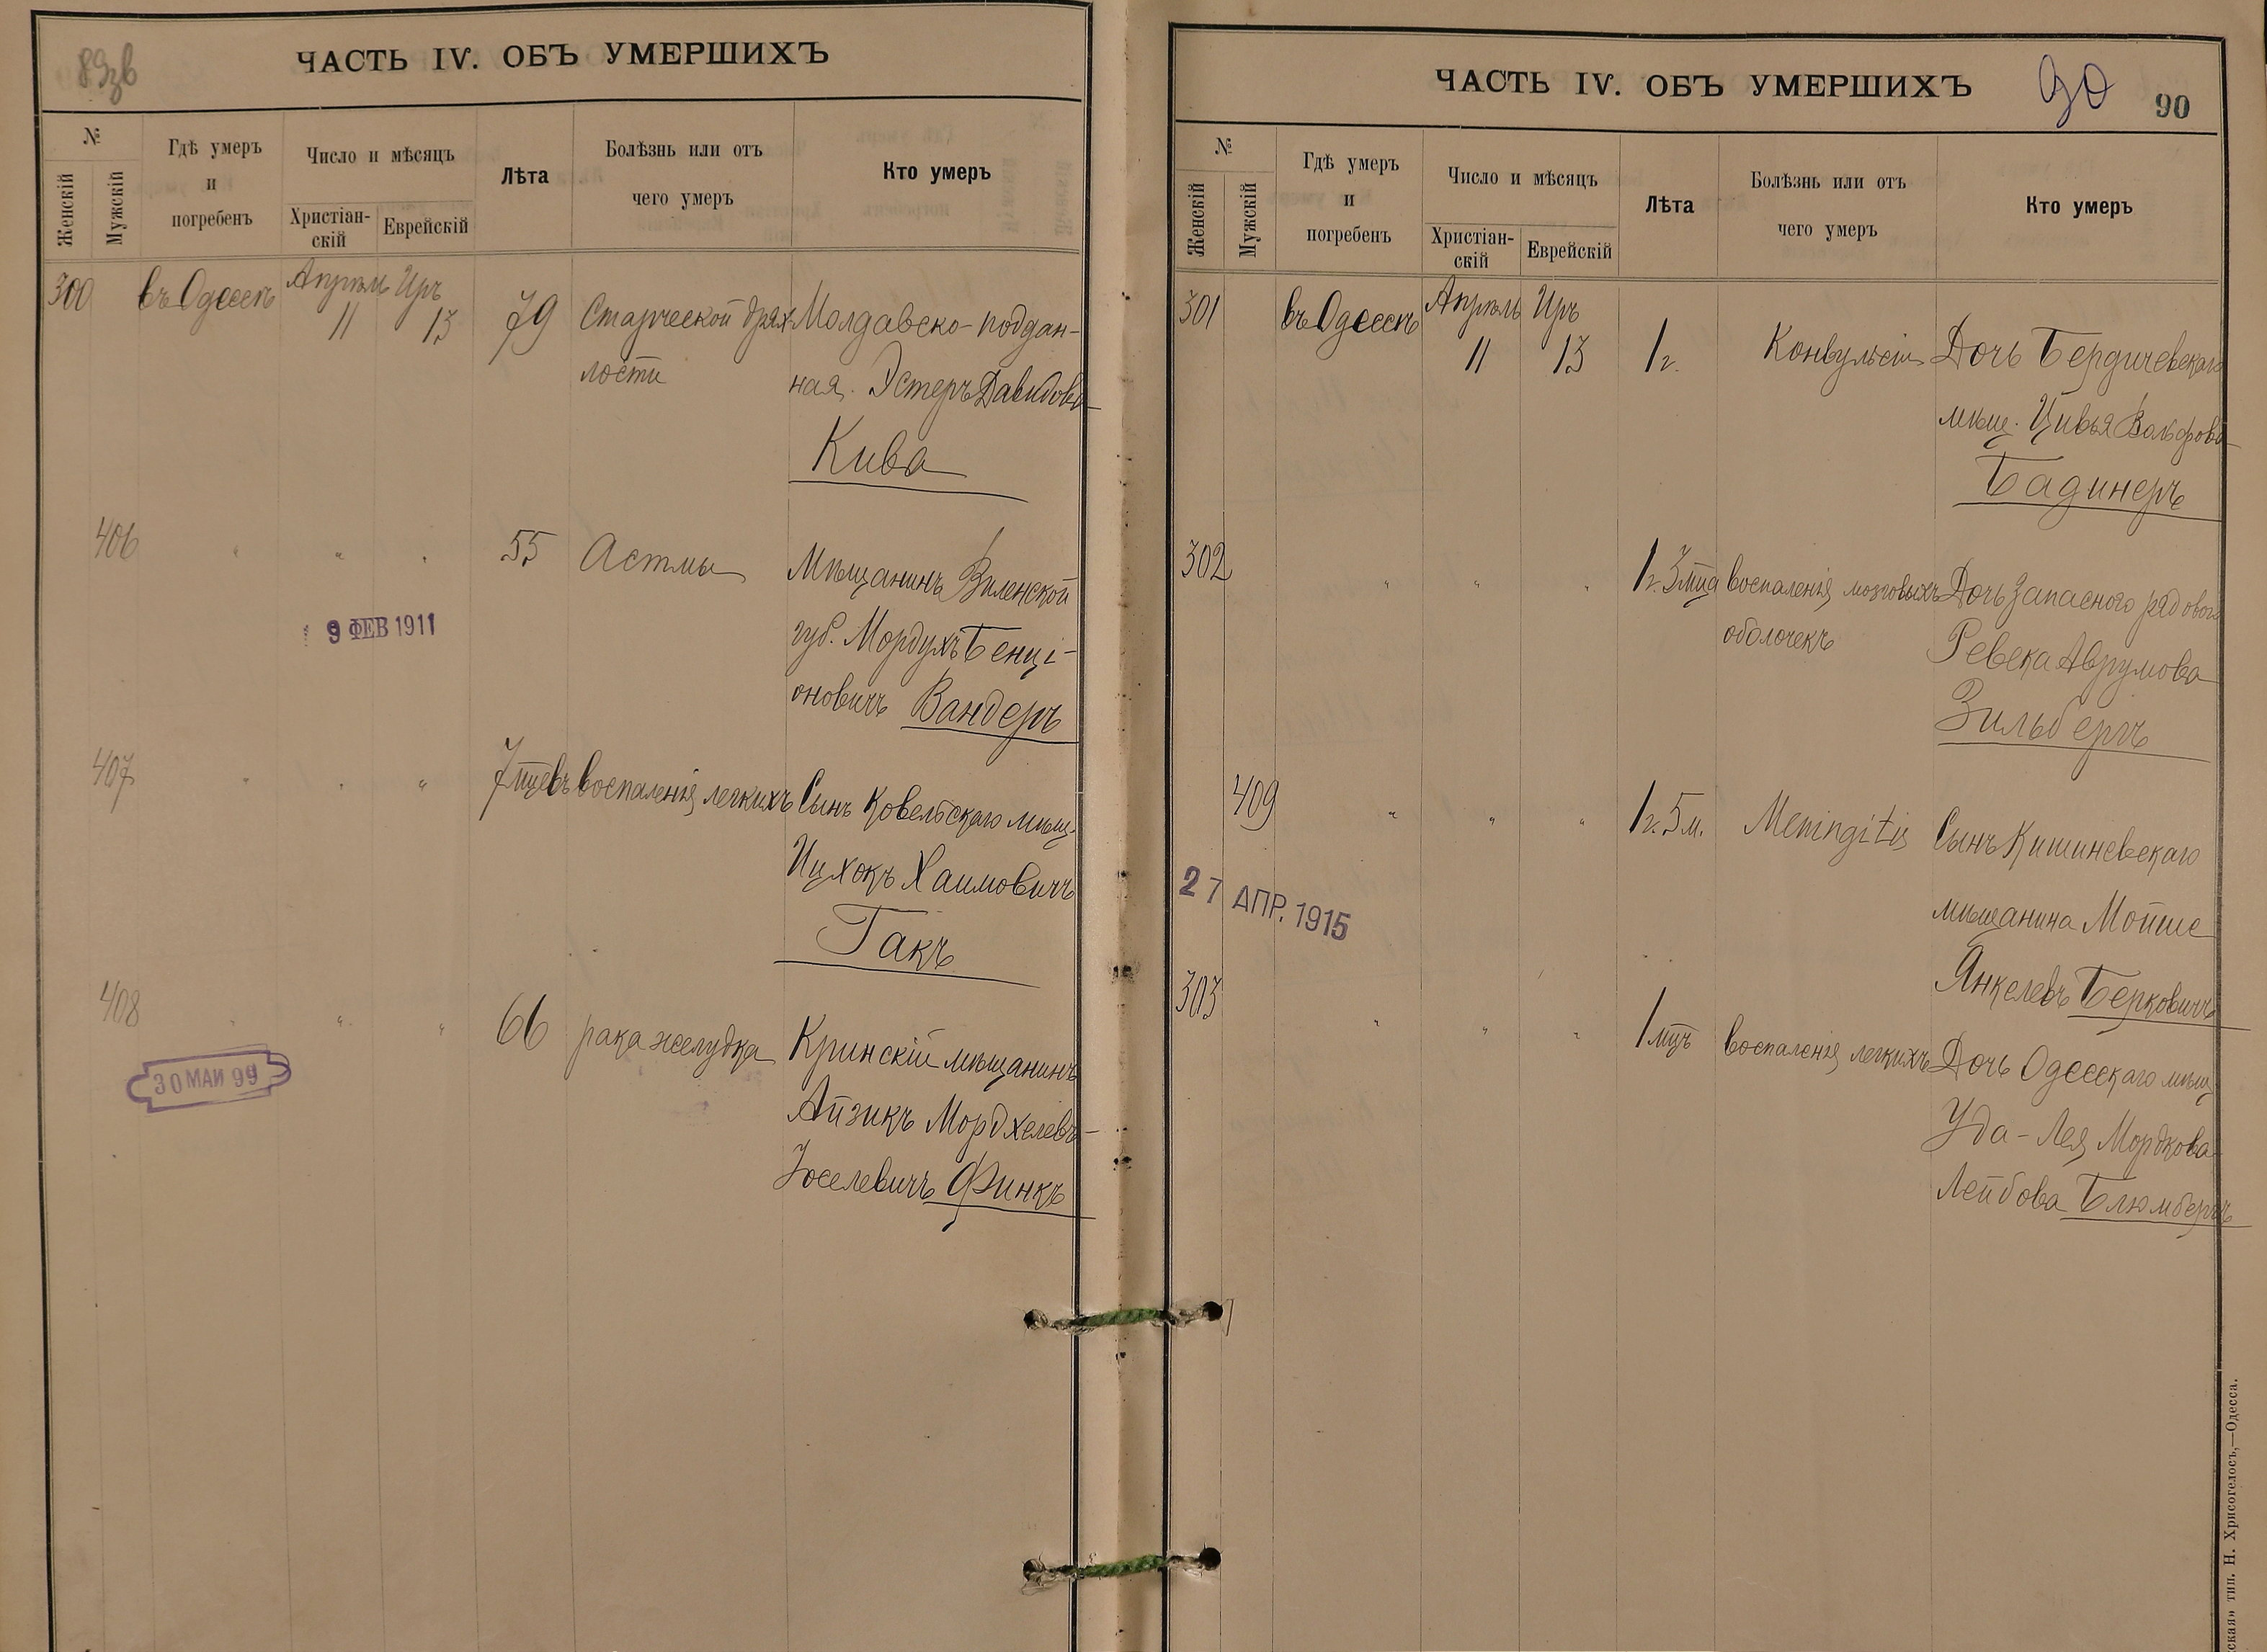 89зв
ЧАСТЬ IV. ОБЪ УМЕРШИХЪ
№
Женскій
Мужскій
Гдѣ умеръ
и
погребенъ
Число и мѣсяцъ
Христіан-
скій
Еврейскій
Лѣта
Болѣзнь или отъ
чего умеръ
Кто умеръ
300 въ Одессѣ Апрѣль 11 Иръ 13 79 Старческой дрях- Молдавско-поддан-
лости ная Эстеръ Давидова
Кива
406 " " " 55 Астмы Мѣщанинъ Виленской
губ. Мордухъ Бенці-
оновичъ Вандеръ
9 ФЕВ 1911
407 " " " 7 мцевъ воспаленія легкихъ Сынъ Ковельскаго мѣщ.
Ицхокъ Хаимовичъ
Гакъ
408 " " " 66 рака желудка Кринскій мѣщанинъ
Айзикъ Мордхелевъ-
Іоселевичъ Финкъ
30 МАИ 99
ЧАСТЬ IV. ОБЪ УМЕРШИХЪ
90
90
№
Женскій
Мужскій
Гдѣ умеръ
и
погребенъ
Число и мѣсяцъ
Христіан-
скій
Еврейскій
Лѣта
Болѣзнь или отъ
чего умеръ
Кто умеръ
301 въ Одессѣ Апрѣль 11 Иръ 13 1 г. Конвульсіи Дочь Бердичевскаго
мѣщ. Цивья Вольфова
Бадинеръ
302 " " " 1 г. 3 мца воспаленія мозговыхъ Дочь запасного рядового
оболочекъ Ревека Аврумова
Зильбергъ
409 " " " 1 г. 5 м. Meningitis Сынъ Кишиневскаго
мѣщанина Мойше
Янкелевъ Берковичъ
27 АПР. 1915
303 " " " 1 мцъ воспаленія легкихъ Дочь Одесскаго мѣщ
Уда-Лея Мордкова
Лейбова Блюмбергъ
тип. Н. Хрисогелосъ,—Одесса.